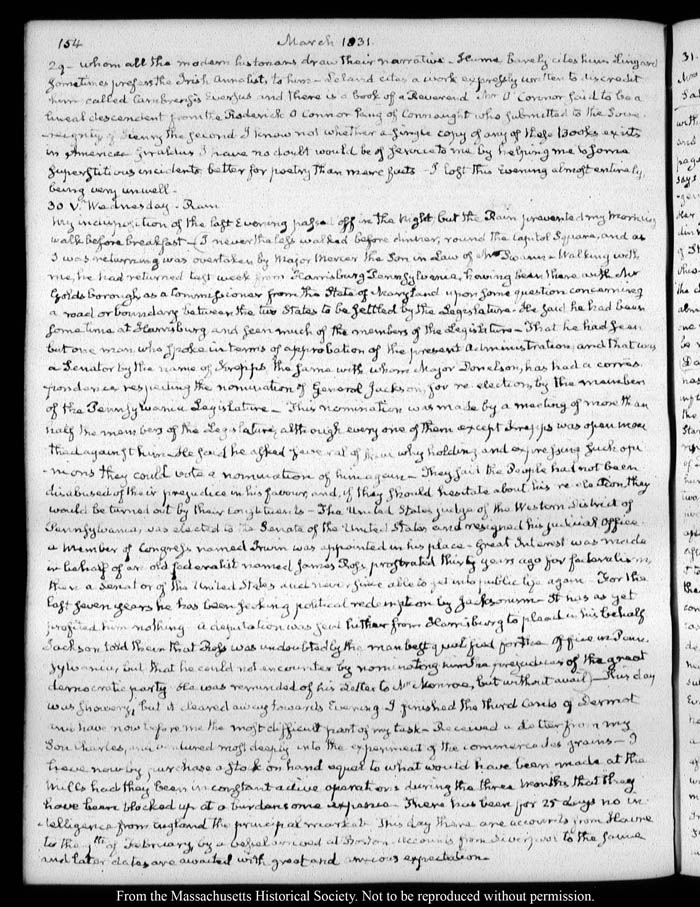 154 March 1831.
29 - whom all the modern historians draw their narrative - Hume barely cites him. Lingard
sometimes prefers the Irish Annalist, to him - Leland cites a work expressly written to discredit
him called Cambrensis Eversus and there is a book of a Reverend Mr O'Connor said to be a
lineal descendent from the Roderick O Connor King of Connaught who submitted to the Sove-
reignty of Henry the Second I know not whether a single copy of any of these Books exists
in America. Giraldus I have no doubt would be of service to me by helping me to some
superstitious incidents, better for poetry than mere facts - I lost this Evening almost entirely,
being very unwell.
30. V. Wednesday - Rain
My indisposition of the last Evening passed off in the Night but the Rain prevented my morning
walk before breakfast - I nevertheless walked before dinner, round the Capitol Square, and as
I was returning was overtaken by Major Mercer the Son in Law of Mr Swann - Walking with
me, he had returned last week from Harrisburg Pennsylvania, having been there with Mr
Goldsborough, as a Commissioner from the State of Maryland upon some question concerning
a road or boundary between the two States to be settled by the Legislature. He said he had been
sometime at Harrisburg and seen much of the members of the Legislature - That he had seen
but one man who spoke in terms of approbation of the present Administration, and that was
a Senator by the name of Krepps the same with whom Major Donelson, has had a corres-
pondence respecting the nomination of General Jackson, for re-election, by the members
of the Pennsylvania Legislature - This nomination was made by a meeting of more than
half the members of the Legislature, although every one of them except Krepps was open mou-
thed against him. He said he asked several of them why holding and expressing such opi-
-nions they could vote a nomination of him again - They said the People had not been
disabused of their prejudice in his favour, and, if they should hesitate about his re-election, they
would be turned out by their Constituents - The United States judge of the Western District of
Pennsylvania, was elected to the Senate of the United States and resigned his judicial Office.
a Member of Congress named Irwin was appointed in his place - Great Interest was made
in behalf of an old federalist named James Ross prostrated thirty years ago for federalism,
then a Senator of the United States and never since able to get into public life again - For the
last seven years he has been seeking political redemption by Jacksonism - It has as yet
profited him nothing - a deputation was sent hither from Harrisburg to plead in his behalf
Jackson told them that Ross was undoubtedly the man best qualified for the Office in Penn-
sylvania, but that he could not encounter by nominating him the prejudices of the great
democratic party. He was reminded of his Letter to Mr Monroe, but without avail - This day
was showery, but it cleared away towards Evening. I finished the third Canto of Dermot
and have now before me the most difficult part of my task - Received a Letter from my
Son Charles, and ventured most deeply into the experiment of the commerce des grains - I
have now by purchase a Stock on hand equal to what would have been made at the
Mills had they been in constant active operations during the three months that they
have been blocked up at a burdensome expense - There has been for 25 days no in-
telligence from England the principal market. This day there are accounts from Havre
to the 7th of February by a vessel arrived at Boston. Accounts from Liverpool to the same
and later dates are awaited with great and anxious expectation.
31.
From the Massachusetts Historical Society. Not to be reproduced without permission.